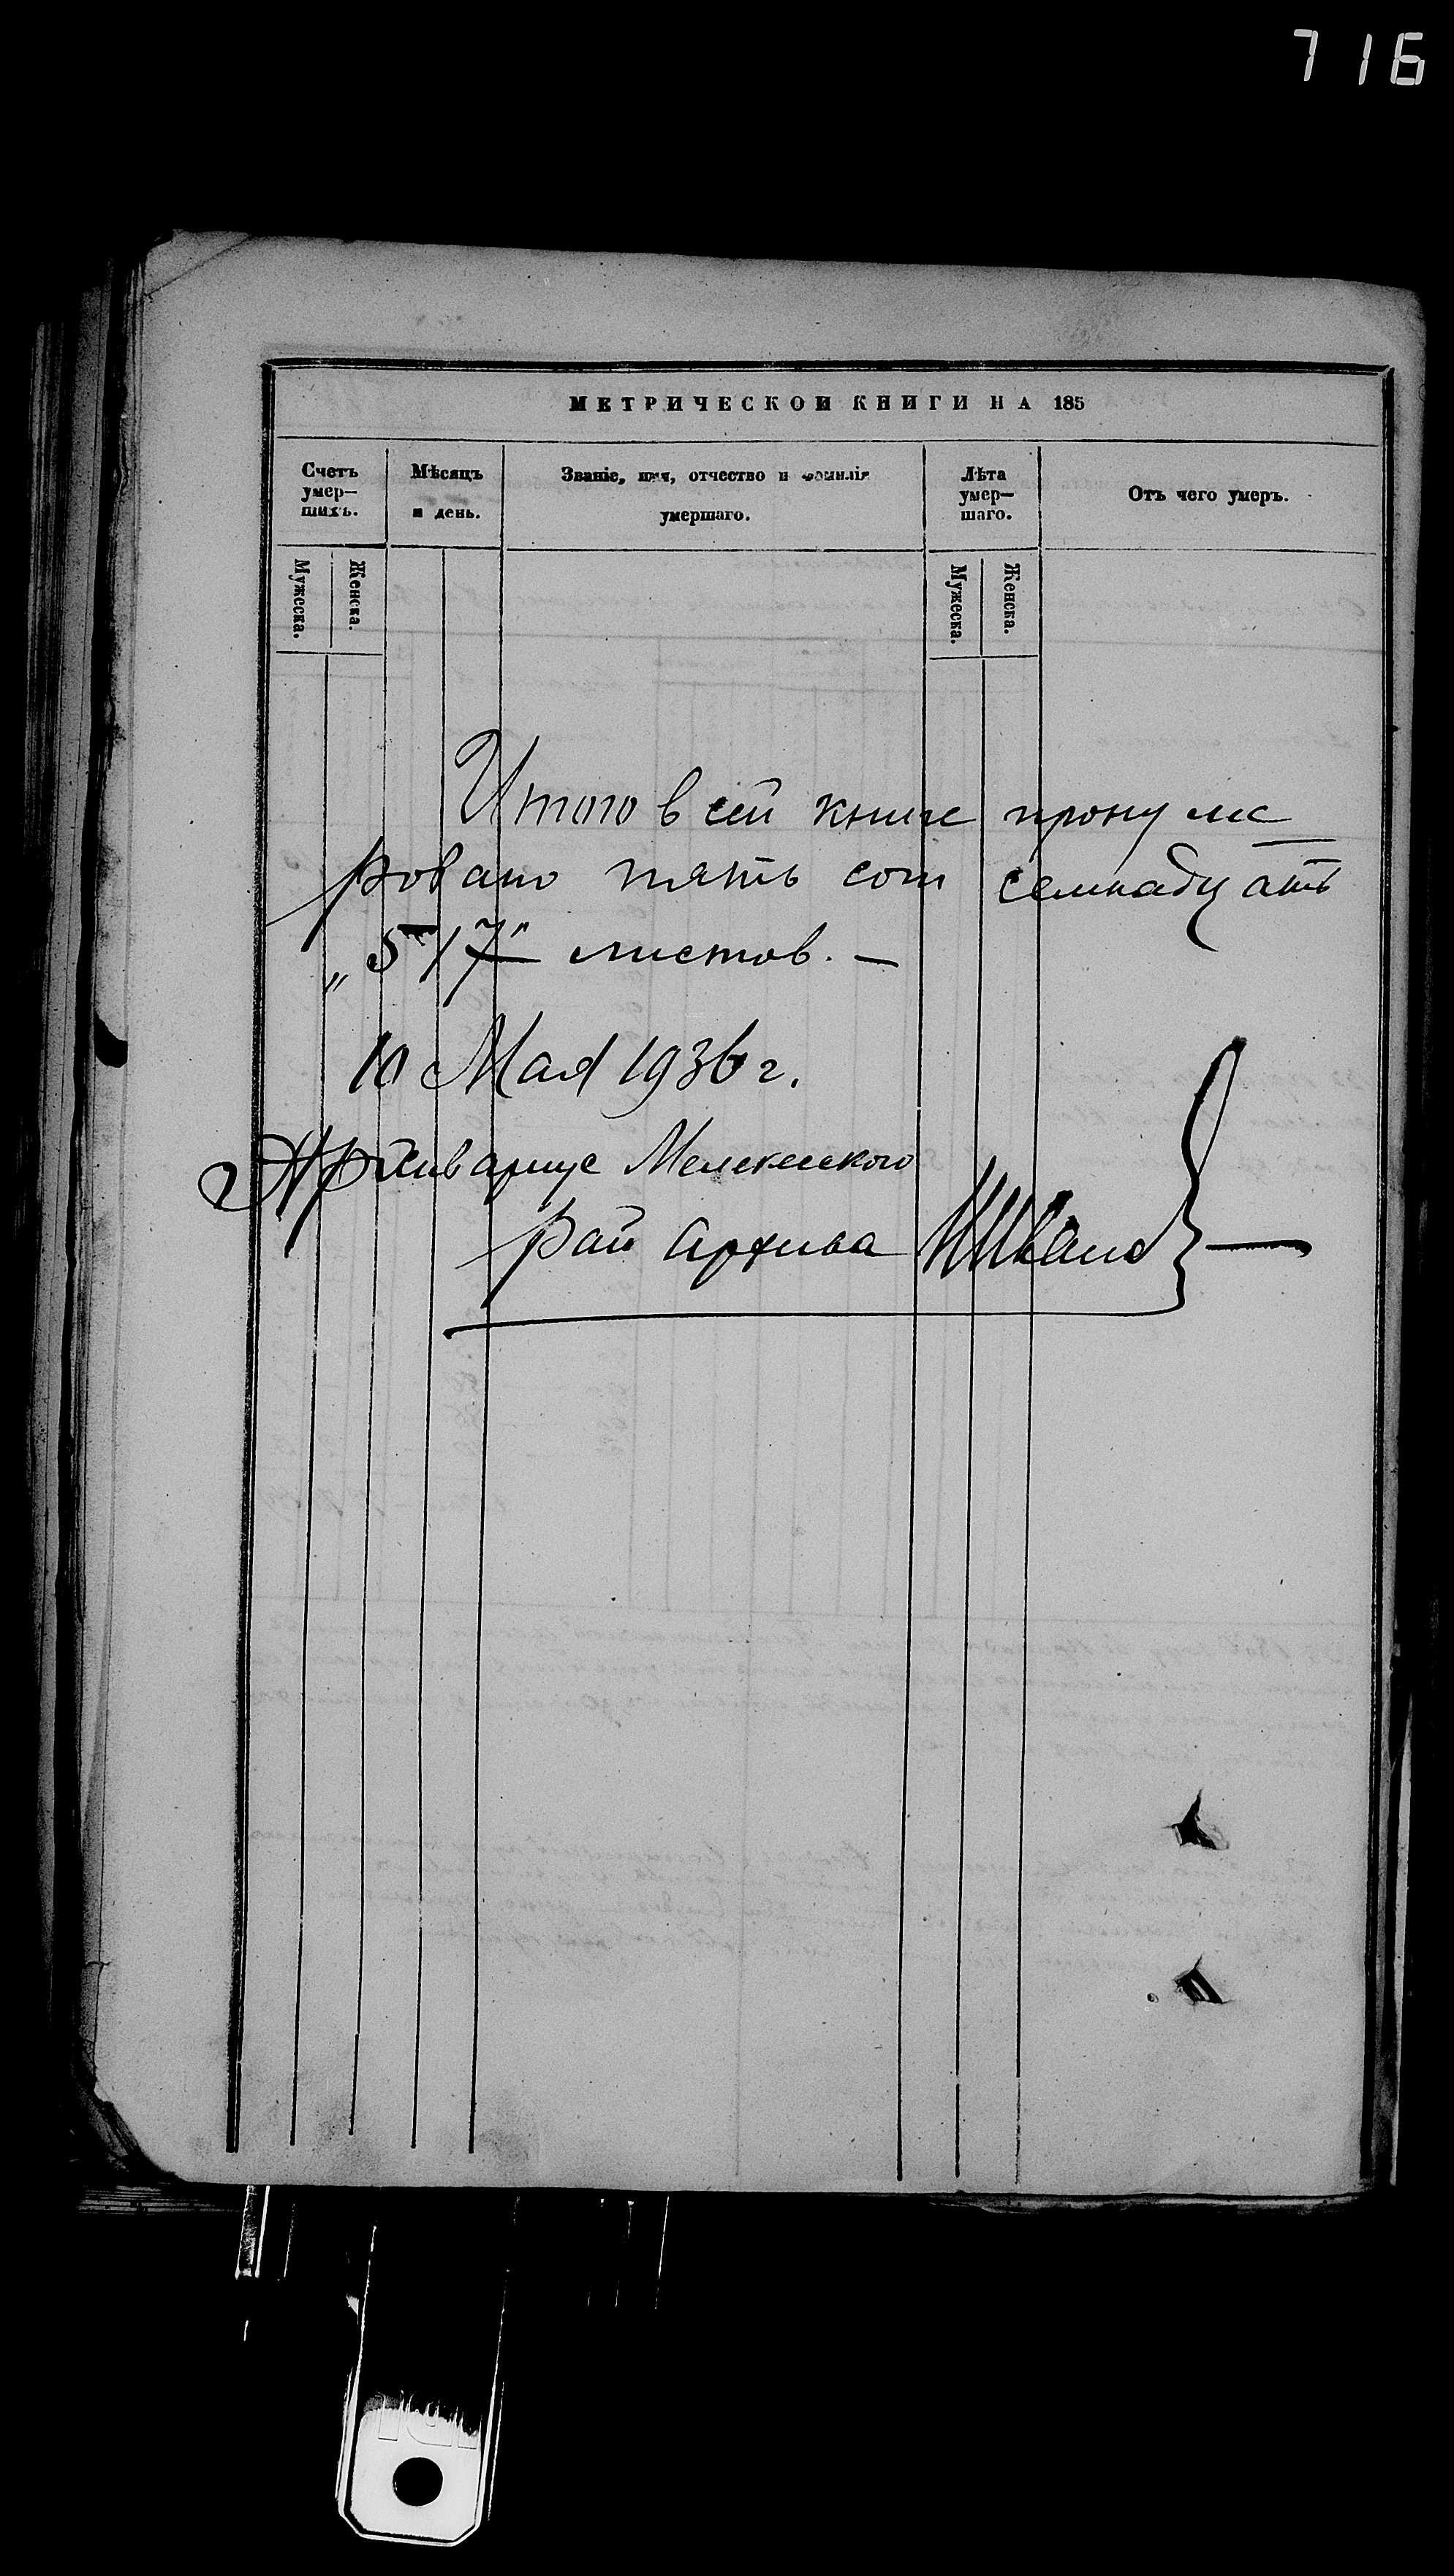 716
МЕТРИЧЕСКОЙ КНИГИ НА 185
Счетъ умер-шихъ.
Мѣсяцъ и день.
Званіе, имя, отчество и фамилія умершаго.
Лѣта умер-шаго.
Отъ чего умеръ.
Мужеска.
Женска.
Мужеска.
Женска.
Итого в сей книге пронуме
ровано пять сот семнадцать
„517" листов. —
10 Мая 1936 г.
Архивариус Мелекесского
рай архива